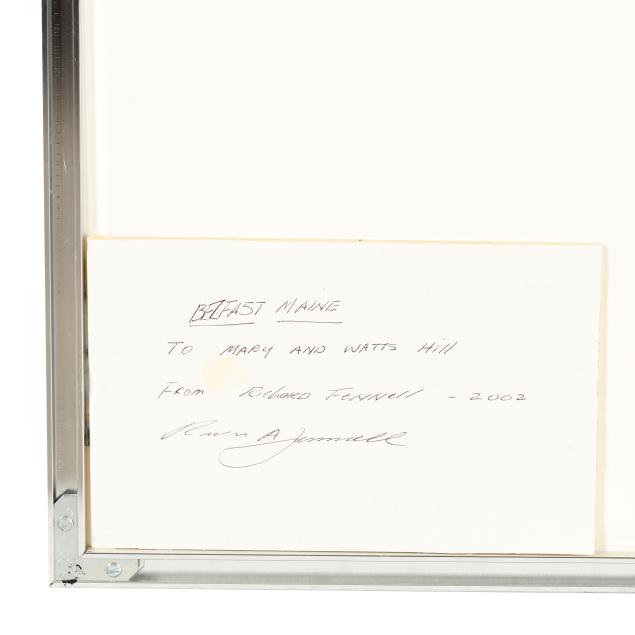 BELFAST MAINE
TO MARY AND WATTS Hill
FROM RICHARD FENNEll - 2002
Richard A Fennell